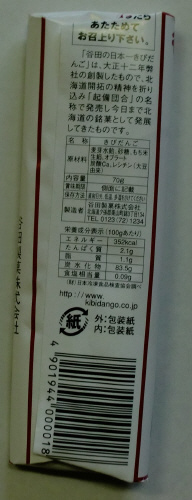 あたためて
お召上り下さい。
「谷田の日本一きびだ
んご」は、大正十二年弊
社の創製したもので、北
海道開拓の精神を折り
込み「起備団合」の名
称で発売し今日まで北
海道の銘菓として発展
してきたものです。
名称 きびだんご
原材料 麦芽水飴、砂糖、もち米
生餡、オブラート
炭酸Ca、レシチン(大豆
由来)
70g
賞味期限 側面に記載
保存方法
製造者 谷田製菓株式会社
TEL 0123(72)1234
栄養成分表示(100gあたり)
エネルギー 352kcal
たんぱく質 2.1g
脂質 1.1g
炭水化物 83.5g
食塩相当量 0.09g
http://www.
kibidango.co.jp
紙
外:包装紙
内:包装紙
4901944000018
谷田製菓株式会社